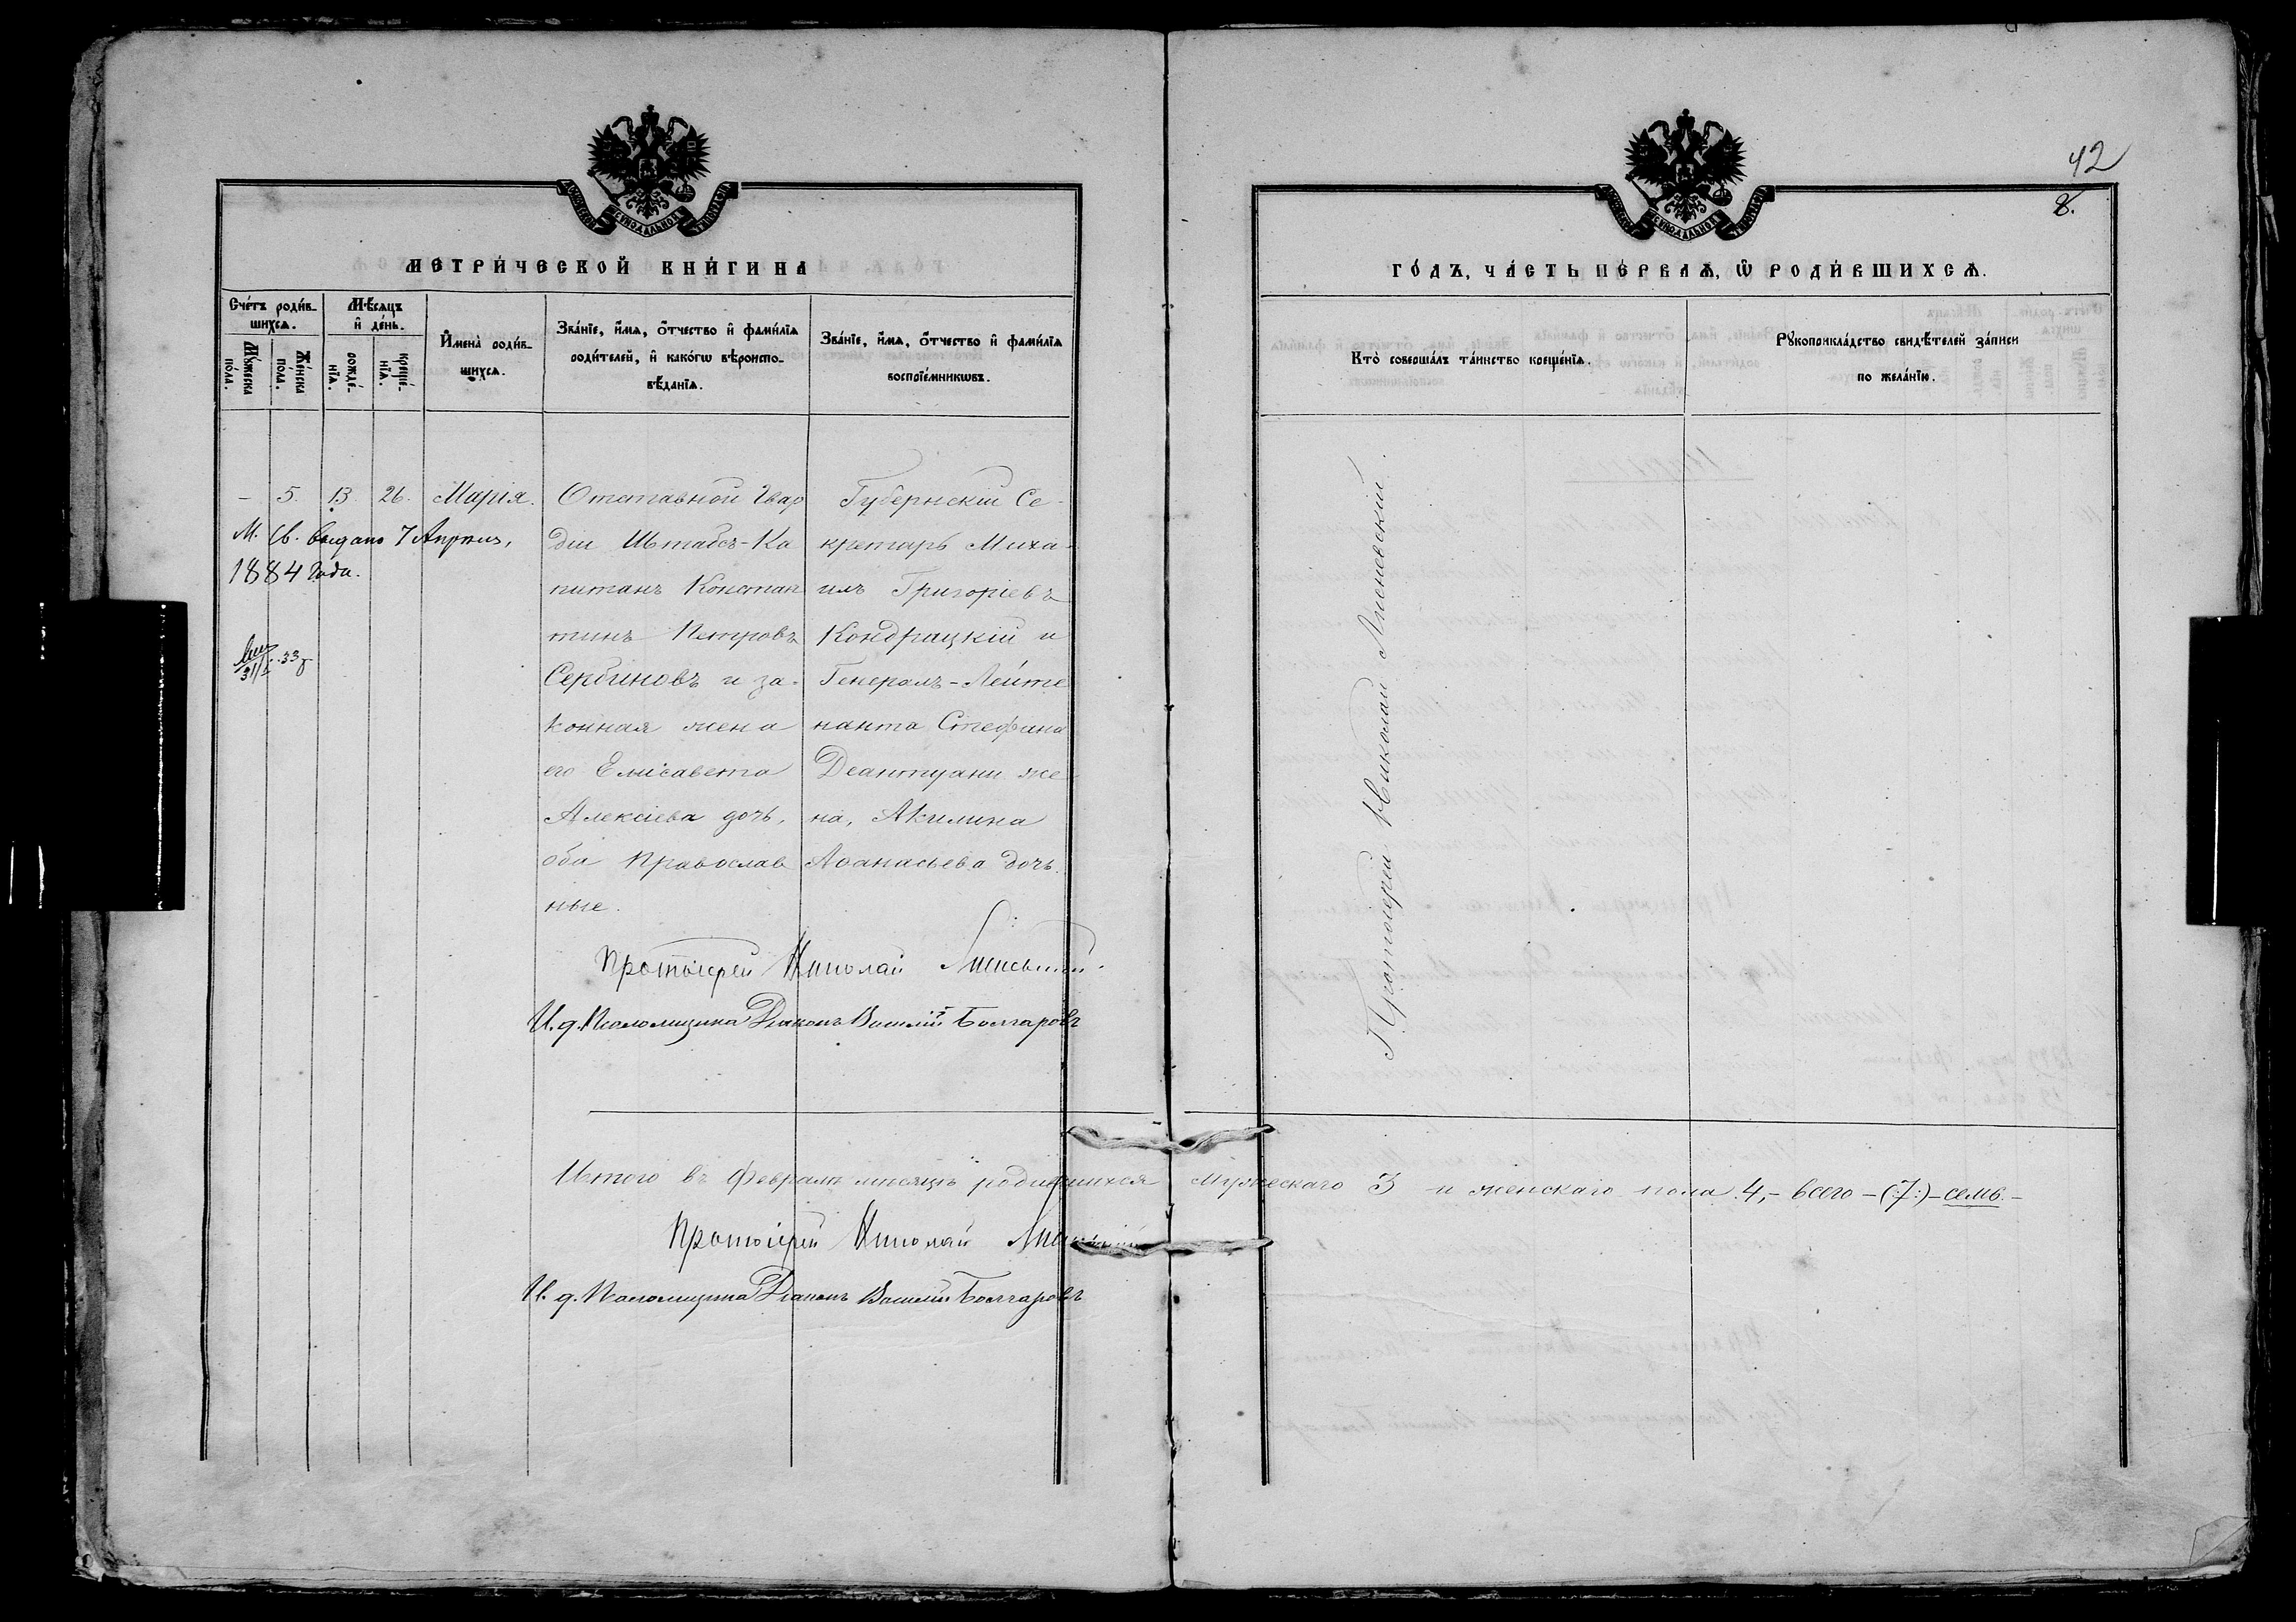 42
8.
МЕТРИ́ЧЕСКОЙ КНИ́ГИ НА
ГО́ДЪ, ЧА́СТЬ ПЕ́РВАѦ, Ѽ РОДИ́ВШИХСѦ.
Сче́тъ роди́в-
шихсѧ.
Мꙋ́жеска
по́ла.
Же́нска
по́ла.
Мѣ́сѧцъ
и҆ де́нь.
рожде́-
нїѧ.
креще́-
нїѧ.
И҆мена̀ роди́в-
шихсѧ.
Зва́нїе, и҆́мѧ, ѻ҆́тчество и҆ фами́лїѧ
роди́телей, и҆ како́гѡ вѣроиспо-
вѣ́данїѧ.
Зва́нїе, и҆́мѧ, ѻ҆́тчество и҆ фами́лїѧ
воспрїе́мникѡвъ.
Кто̀ соверша́лъ та́инство креще́нїѧ.
Рꙋкоприкла́дство свидѣ́телей за́писи
по жела́нїю.
— 5. 13. 26. Марія.
М. Св. выдано 7 Апрѣля,
1884 Года.
31/I 33 г
Отставной Гвар
діи Штабсъ-Ка
питанъ Констан
тинъ Петровъ
Сербиновъ и за-
конная жена
его Елисавета
Алексіева дочь,
оба Православ
ные.
Губернскій Се-
кретарь Миха-
илъ Григоріевъ
Кондрацкій и
Генералъ-Лейте
нанта Стефана
Деантуани же-
на, Акилина
Аѳанасьева дочь.
Протоіерей Николай Линевскій.
Протоіерей Николай Линевскій.
И. д. Псаломщика Діаконъ Василій Болгаровъ
Итого въ Февралѣ мѣсяцѣ родившихся мужескаго 3 и женскаго пола 4,- всего -(:7:)- семь.-
Протоіерей Николай Линевскій
И. д. Псаломщика Діаконъ Василій Болгаровъ